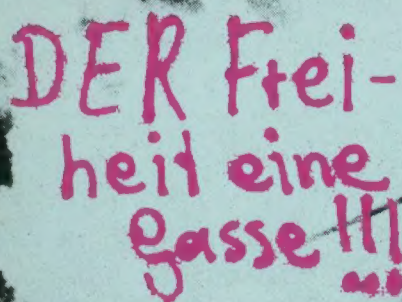 DER Frei-
heit eine
gasse!!!